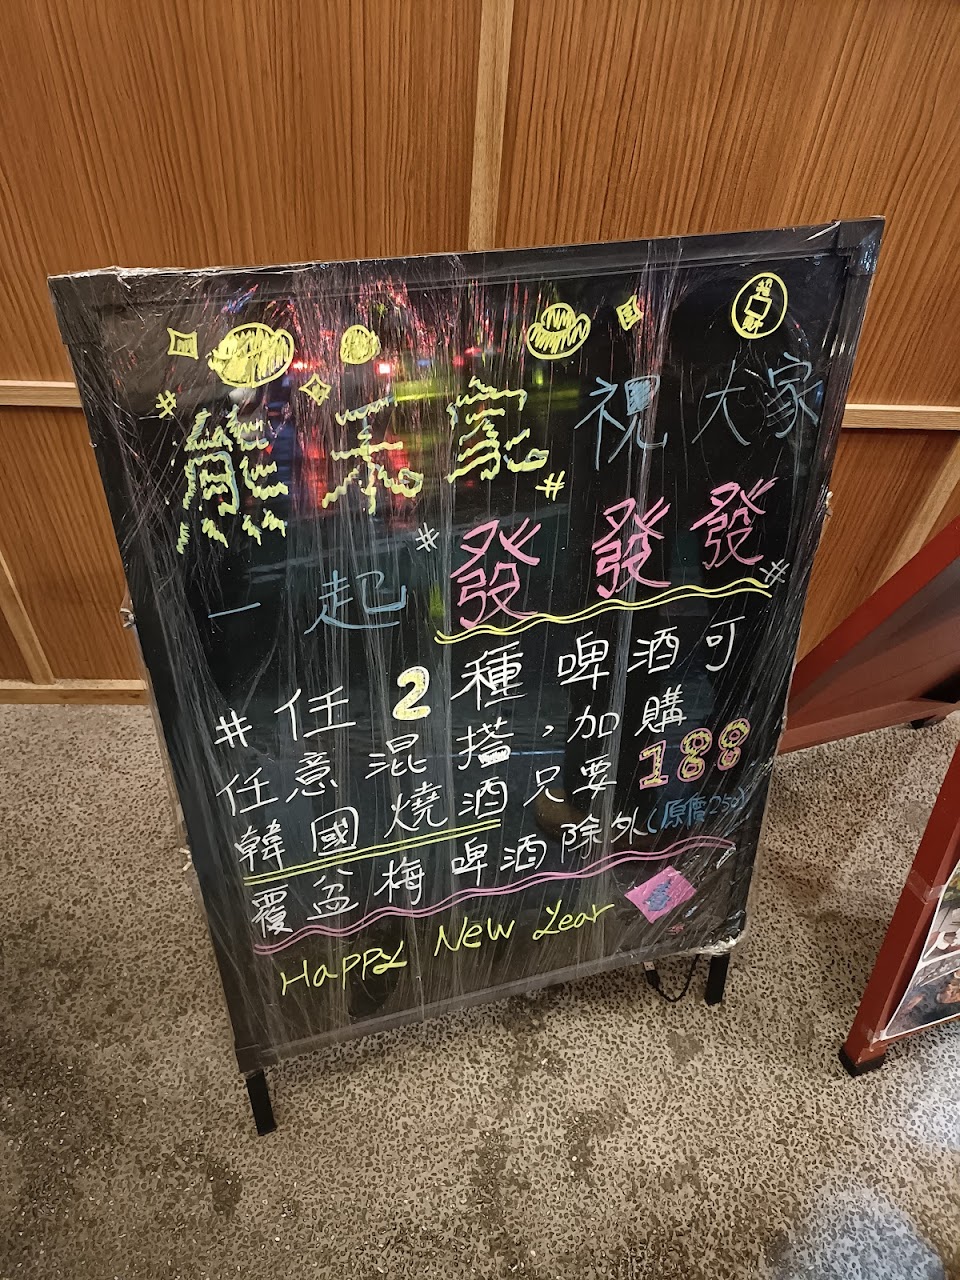 招財
熊禾家 祝大家
一起 #發發發#
#任2種啤酒可
任意混搭,加購
韓國燒酒只要188
(原價250)
覆盆梅啤酒除外
Happy New Year